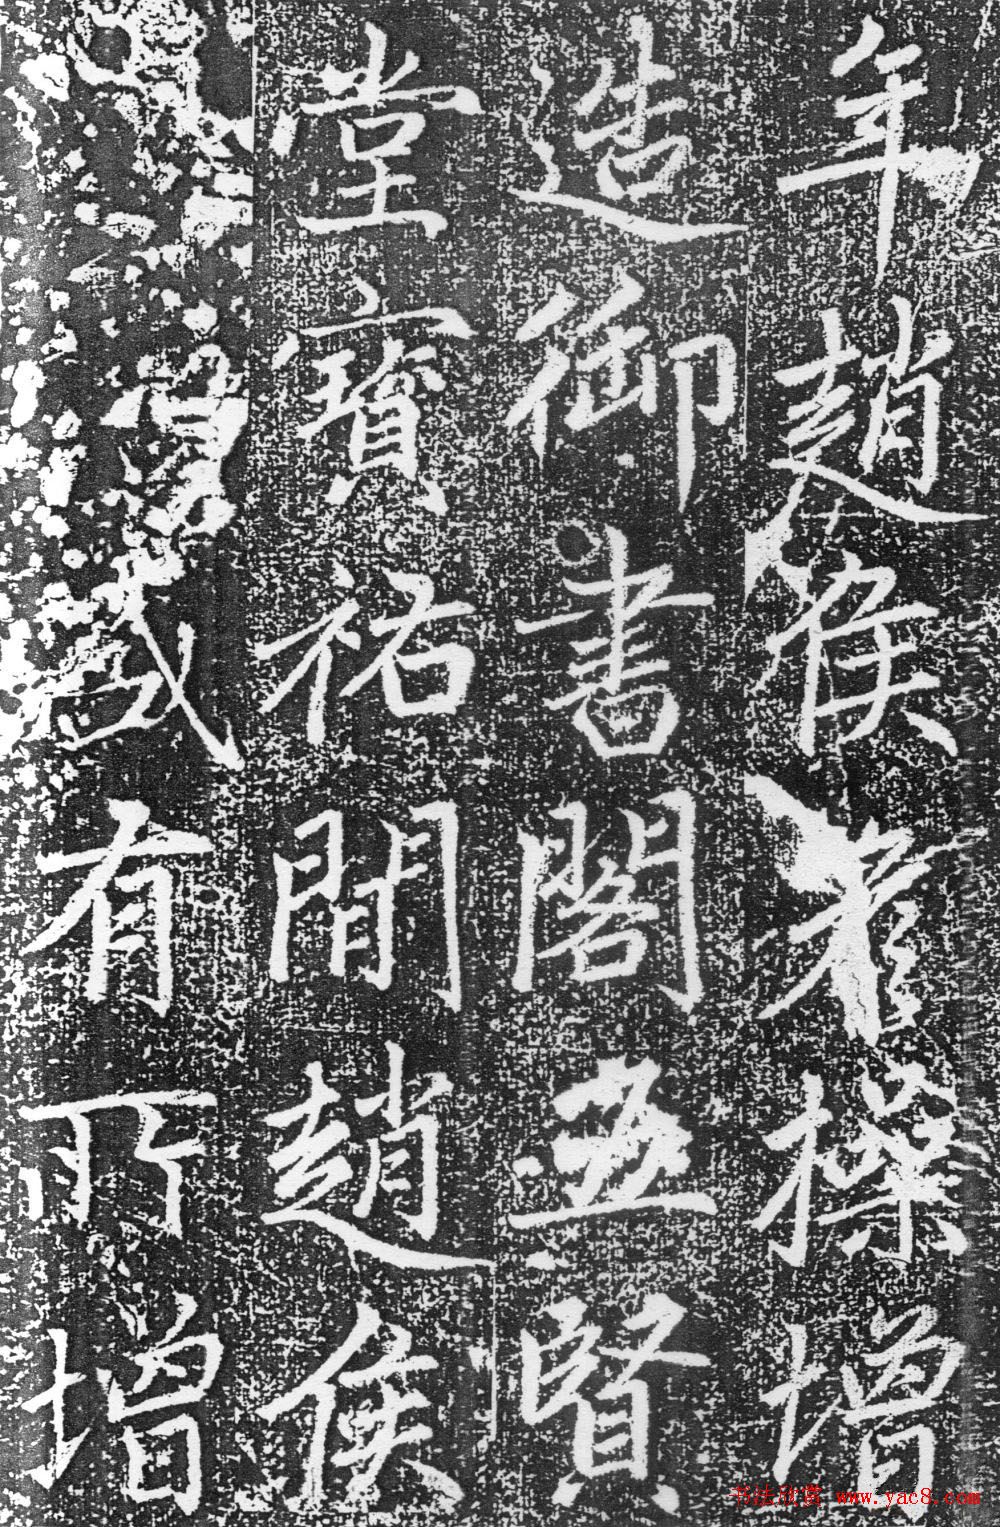 年趙侯操增
造御書閣五賢
堂寶祐間趙侯
有所增
书法欣赏 www.yac8.com